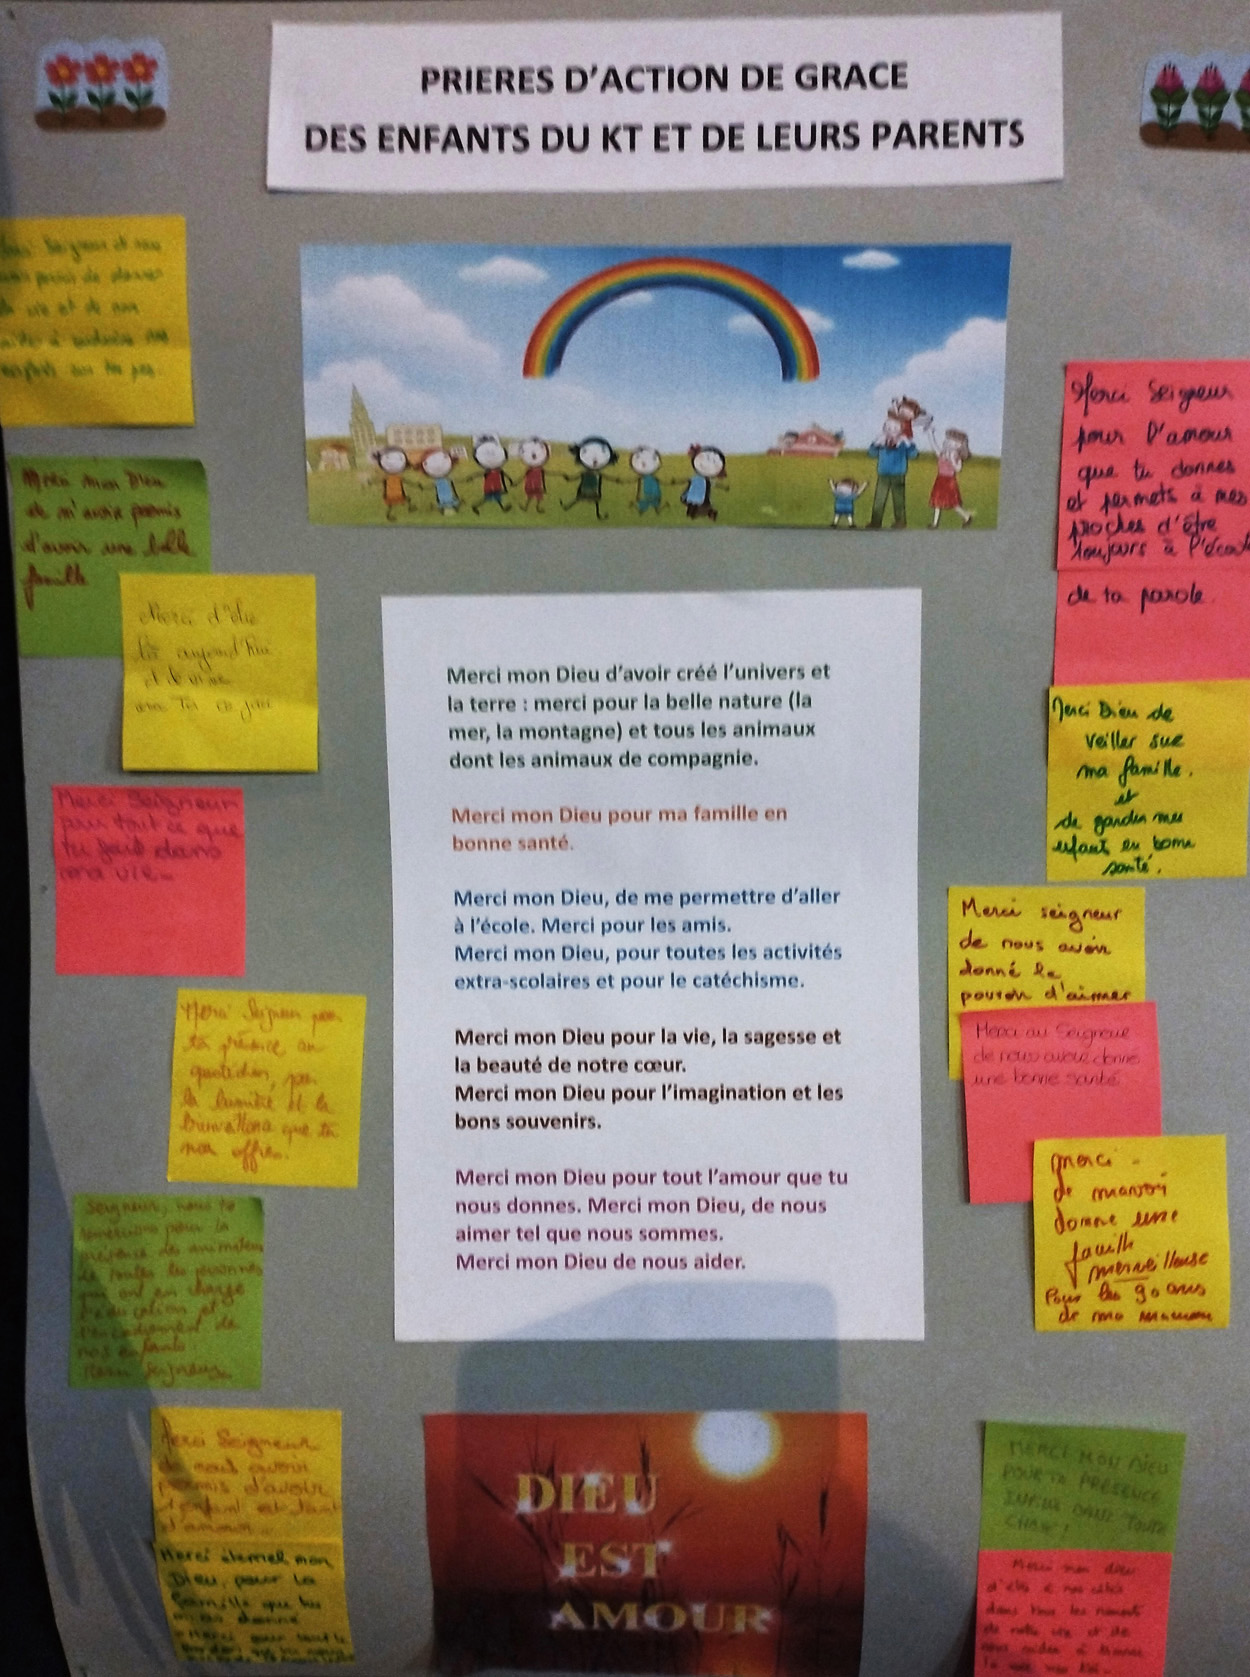 PRIERES D'ACTION DE GRACE
DES ENFANTS DU KT ET DE LEURS PARENTS
Seigneur et
de donner
vie et de
à
enfants sur tes pas.
Merci mon Dieu
de m'avoir permis
d'avoir une belle
famille
Merci d'être
là aujourd'hui
avec Toi ce jour
Merci Seigneur
pour tout ce que
tu fais dans
ma vie.
Merci Seigneur pour
ta présence au
quotidien, par
la lumière et la
bienveillance que tu
nous offres.
Seigneur, nous te
remercions pour la
présence des animateurs
de toutes les personnes
qui ont en charge
l'éducation et
l'encadrement de
nos enfants.
Merci Seigneur.
Merci Seigneur
de nous avoir
permis d'avoir
1 enfant et tant
d'amour.
Merci éternel mon
Dieu, pour la
famille que tu
m'as donné
Merci pour tout le
Merci mon Dieu d'avoir créé l'univers et
la terre : merci pour la belle nature (la
mer, la montagne) et tous les animaux
dont les animaux de compagnie.
Merci mon Dieu pour ma famille en
bonne santé.
Merci mon Dieu, de me permettre d'aller
à l'école. Merci pour les amis.
Merci mon Dieu, pour toutes les activités
extra-scolaires et pour le catéchisme.
Merci mon Dieu pour la vie, la sagesse et
la beauté de notre cœur.
Merci mon Dieu pour l'imagination et les
bons souvenirs.
Merci mon Dieu pour tout l'amour que tu
nous donnes. Merci mon Dieu, de nous
aimer tel que nous sommes.
Merci mon Dieu de nous aider.
DIEU
EST
AMOUR
Merci Seigneur
pour l'amour
que tu donnes
et permets à mes
proches d'être
toujours à l'écoute
de ta parole.
Merci Dieu de
veiller sur
ma famille.
et
de garder mes
enfant en bonne
santé.
Merci seigneur
de nous avoir
donné le
pouvoir d'aimer
Merci au Seigneur
de nous avoir donné
une bonne santé
merci -
de mavoi
donne une
famille
merveilleuse
Pour les 90 ans
de ma maman
MERCI MON DIEU
POUR TA PRESENCE
DANS TOUTE
Merci mon dieu
d'être à nos côtés
dans tous les moments
de notre vie et de
nous aider à